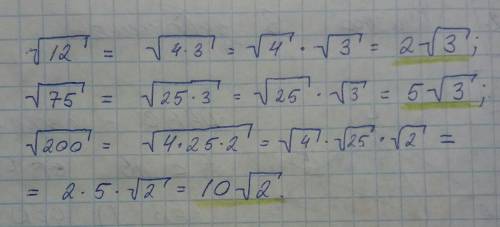 √12 = √4·3 = √4 · √3 = 2√3;
√75 = √25·3 = √25 · √3 = 5√3;
√200 = √4·25·2 = √4 · √25 · √2 =
= 2·5·√2 = 10√2.